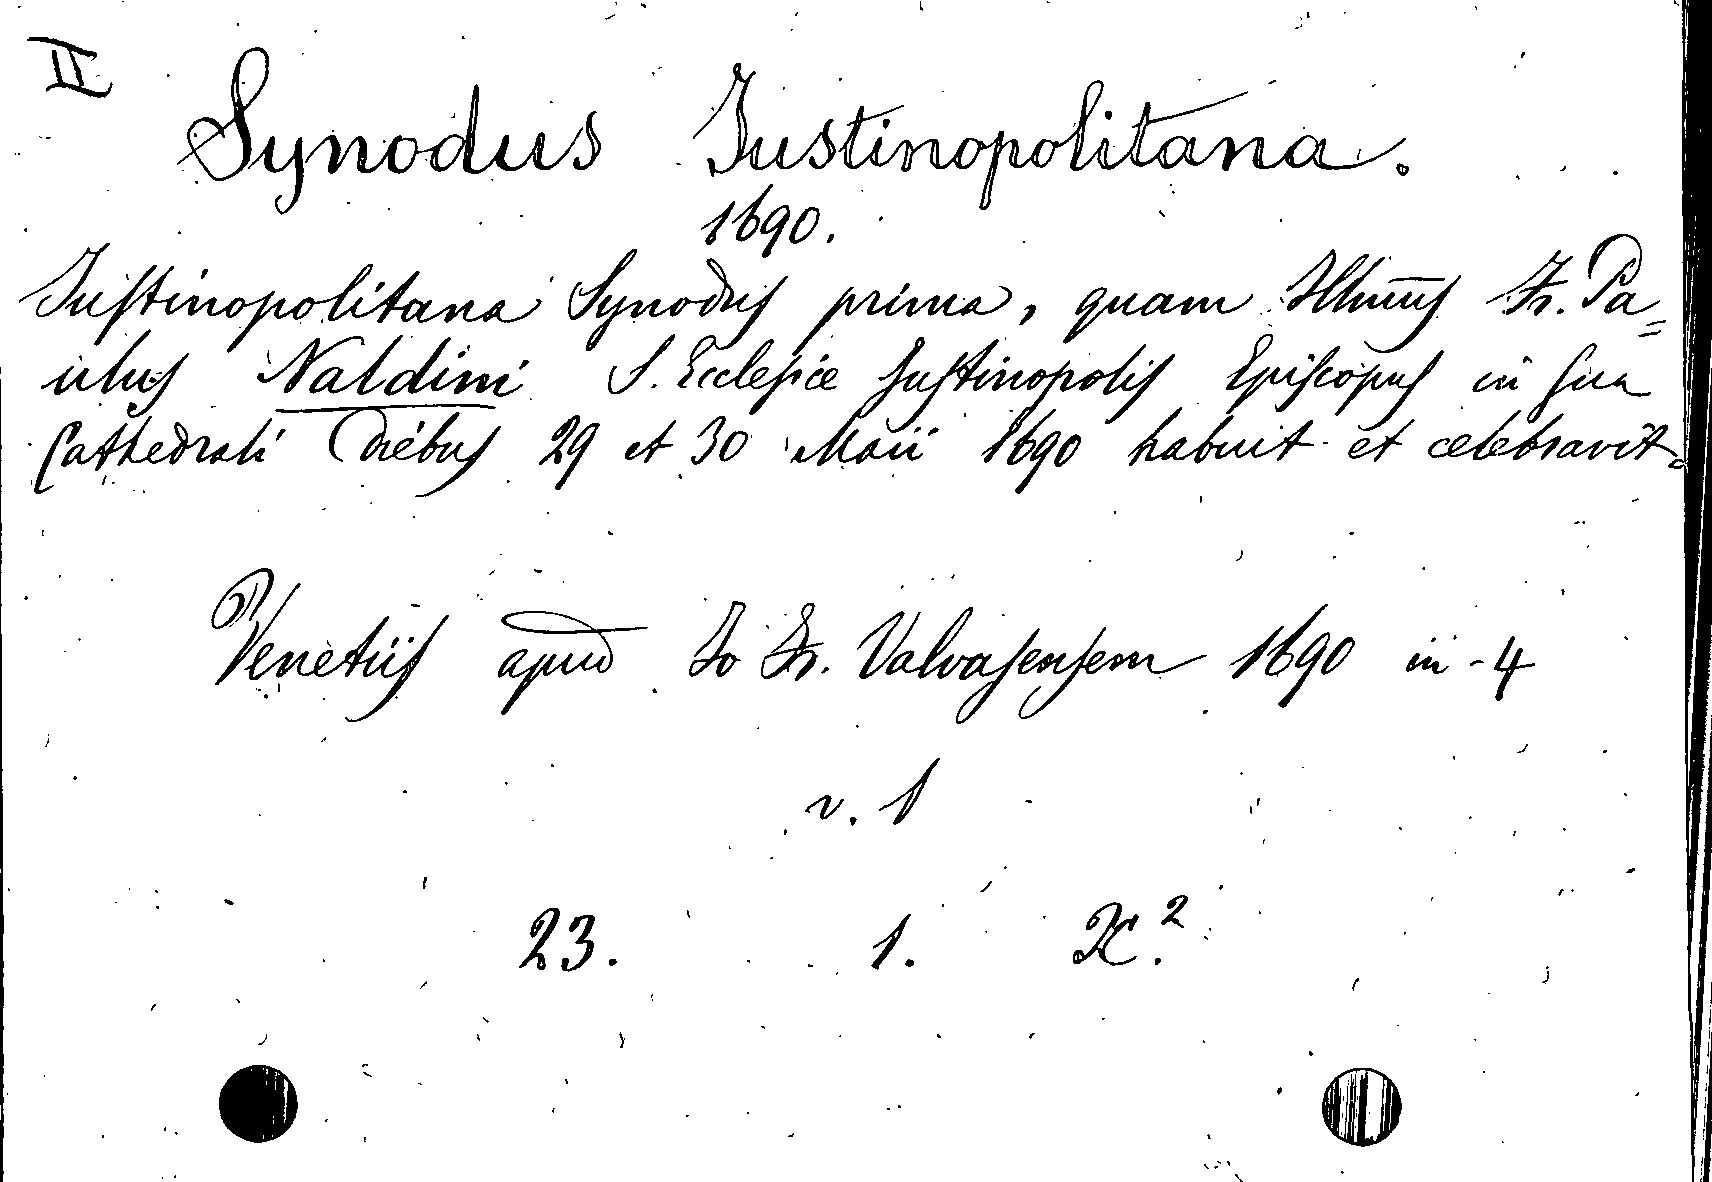 II
Synodus Justinopolitana.
1690.
Justinopolitana Synodus prima, quam Illm̅us Fr. Pa=
ulus Naldini S. Ecclesiæ Justinopolis Episcopus in sua
Cathedrali diebus 29 et 30 Maii 1690 habuit et celebravit.
Venetiis apud Jo Fr. Valvasensem 1690 in-4
v. 1
23. 1.